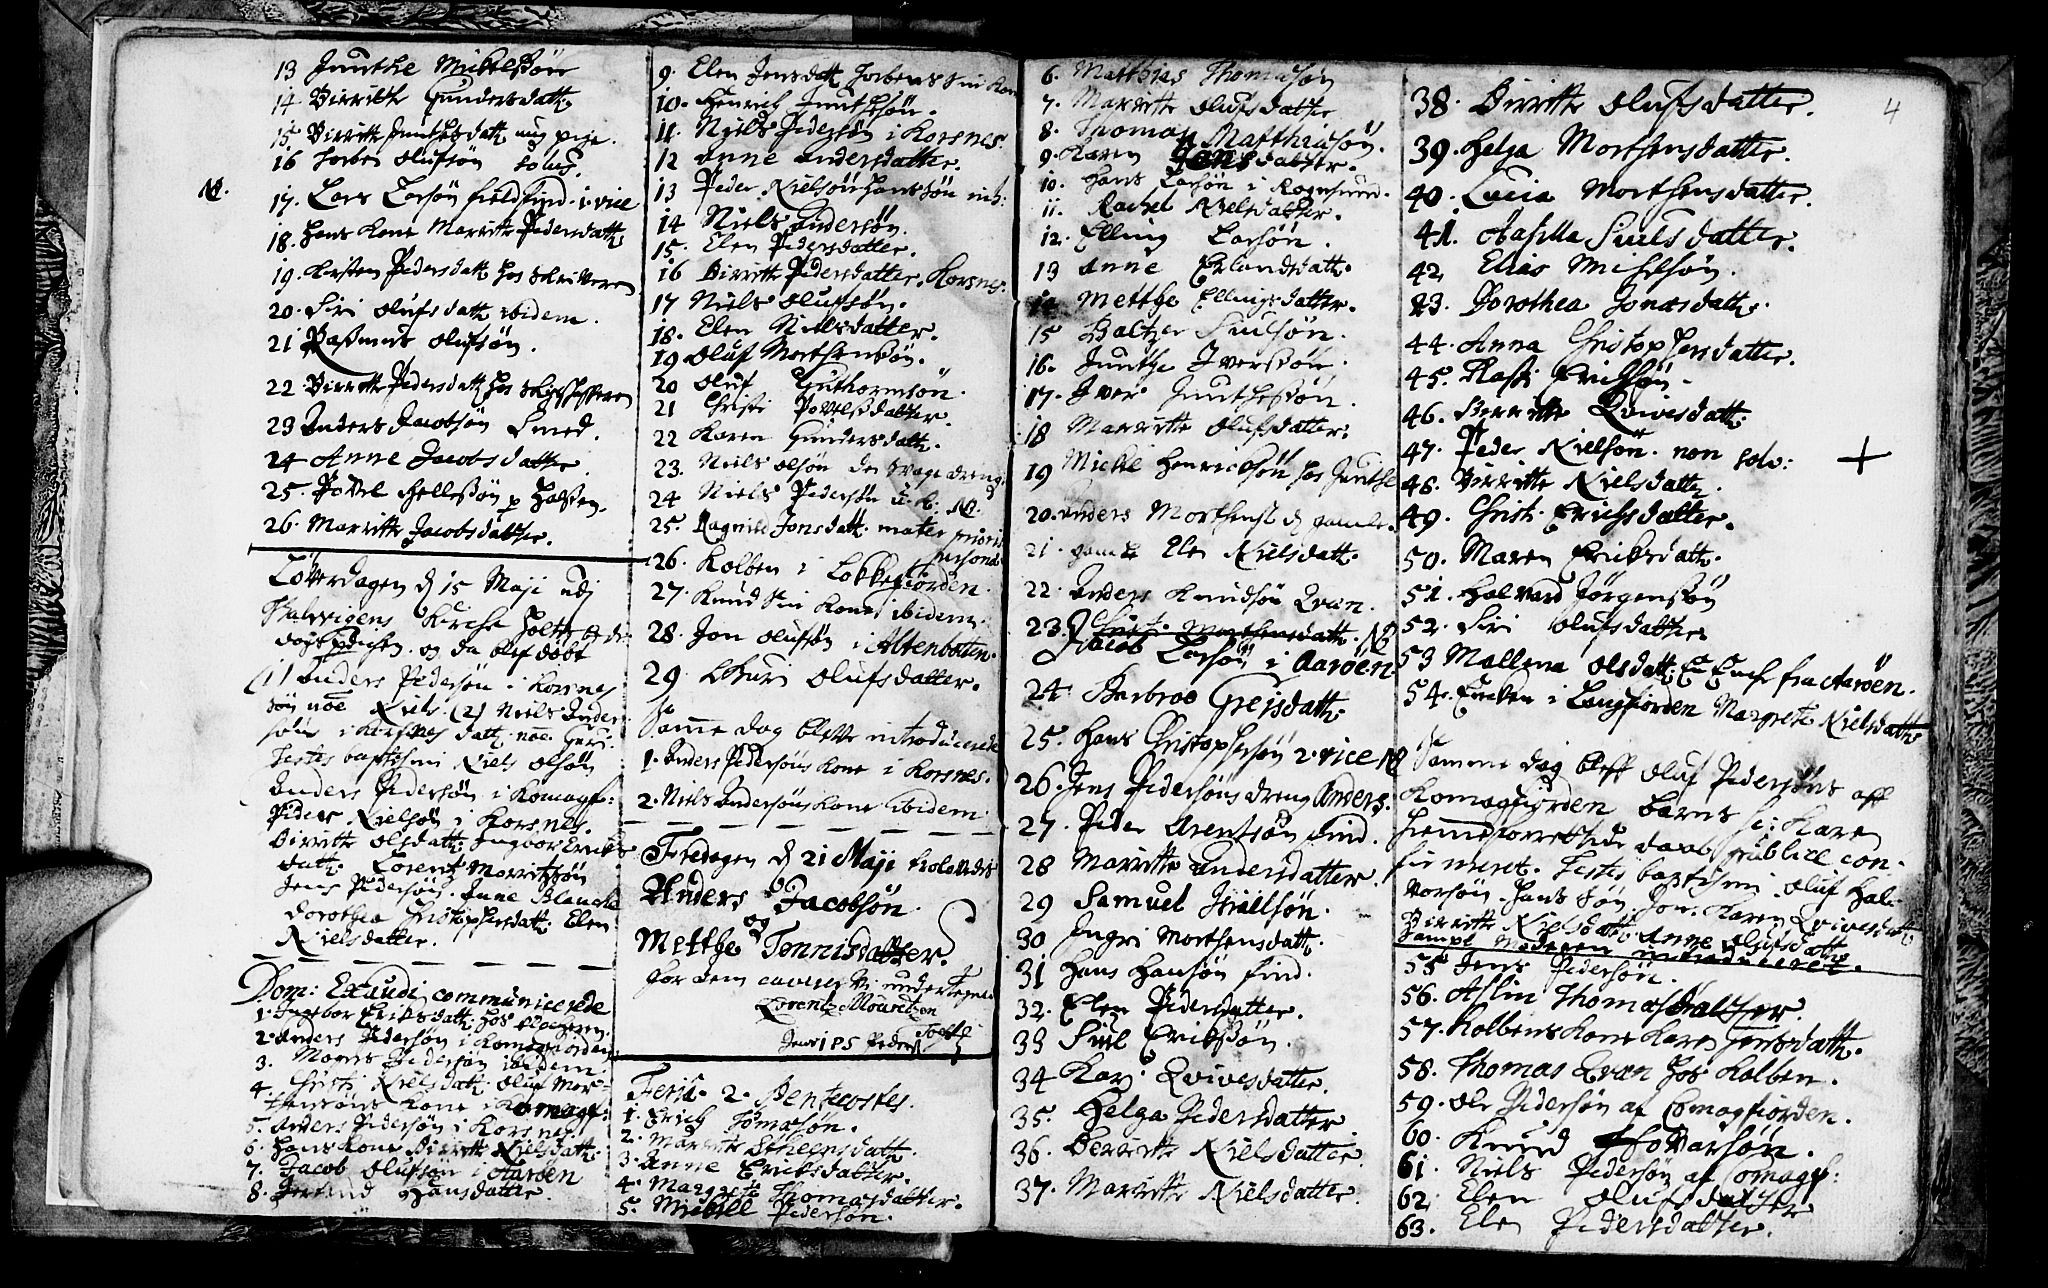 13 Junthe Mickelsøn
14 Birrithe Gundersdatt.
15. Birrithe Junthesdatt ung pige.
16 Torben Olufsøn solus.
N.
17. Lars Larsøn fieldfind. 1. vice
18. Hans Kone Marrithe Pedersdatt.
19. Kirsten Pedersdatt hos Skriveren
20. Siri Olufsdatt ibidem.
21 Rasmus Olufsøn.
22 Birrithe Pedersdatt hos
23 Anders Jacobsøn Smed.
24 Anne Jacobsdatter
25. Povel Hellesøn p Holsten.
26. Marrithe Jacobsdatter.
Løverdagen d 15 Maji udj
Talvigens Kirche holt
og da blef døbt
(1) Anders Pedersøn i Korsnes
søn noe Niels. (2) Niels Ander-
søns i Korsnes datt. noe
Testes baptismi Niels Olsøn
Anders Pedersøn i Komagf:
Peder Nielsøn i Korsnes.
Birrithe Olsdatt. Ingbor Eriks
datt. Lorentz Mouritzøn
Jens Pedersøn. Anne Blanche
Dorothea Christophersdatt. Elen
Nielsdatter.
Dom: Exaudi communicerede
1. Ingebor Eriksdatt. hos
2. Anders Pedersøn i Komagfiorden
3. Pedersøn ibidem.
4. Christi Nielsdatt. Oluf Mor-
thensøns Kone i Komagf:
5. Anders Pedersøn i Korsnes.
6. Hans Kone Birrithe Nielsdatt.
7. Jacob Olufsøn i Aarøen
8. Hansdatter.
9. Elen Jensdatt Torbens
10. Henrich Junthesøn.
11. Niels Pedersøn i Korsnes.
12 Anne Andersdatter.
13 Peder Nielsøn
14 Niels Andersøn.
15. Elen Pedersdatter.
16 Birrithe Pedersdatter. Korsnes.
17 Niels Olufsøn.
18. Elen Nielsdatter.
19 Oluf Morthensøn.
20 Oluf Guthormsøn.
21 Christi Povelsdatter.
22 Karen Gundersdatt.
23. Niels Olsøn den
24 Niels Pedersøn
25. Ragnild Jonsdatt. mater prioris
personæ
26. Kolben i Lokkefiorden.
27. Knud Kone ibidem.
28. Jon Olufsøn i Altenbotten.
29. Guri Olufsdatter.
Samme dag bleve introducerede
1. Anders Pedersøns Kone i Korsnes.
2. Niels Andersøns Kone ibidem
Fredagen d 21 Maji trolovedes
Anders Jacobsøn
og
Metthe Tønnisdatter.
for dem caverer vi undertegnede
Lorentz Mouritzen
Jens IPS Peders
Feria 2. Pentecostes.
1. Erich Tomæsøn.
2. Marrithe
3. Anne Eriksdatter.
4. Margrete Thomasdatter.
5. Mickell Pedersøn.
6. Matthias Thomæsøn
7. Marrithe Olufsdatter
8. Thomas Matthiasøn.
9. Karen Jensdatter.
10. Hans Larsøn i Rognsund.
11. Rachel Nielsdatter.
12. Elling Larsøn.
13 Anne Erlandsdatt.
14 Metthe Ellingsdatter.
15 Baltzer Siulsøn.
16. Junthe Iversøn.
17. Iver Junthesøn.
18 Marrithe Olufsdatter.
19 Mickel Henricksøn hos Junthe
20. Anders Morthens d gamle.
21. gamle Elen Nielsdatt.
22. Anders Knudsøn Qvæn.
23. Christi Morthensdatt. NB
Jacob Larsøn i Aarøen
24. Barbroe Grejsdatt.
25. Hans Christophersøn 2. vice N
26. Jens Pedersøns dreng Anders.
27. Peder Arentsøn find.
28 Marrithe Andersdatter.
29 Samuel Joelsøn.
30 Ingri Morthensdatt.
31 Hans Hansøn find.
32. Elen Pedersdatter.
33 Siul Eriksøn.
34 Kari Qvivesdatter.
35. Helga Pedersdatter
36. Berrithe Nielsdatter.
37. Marrithe Nielsdatter.
4
38. Birrithe Olufsdatter.
39. Helga Morthensdatter.
40. Lucia Morthensdatter.
41. Aasilla Siulsdatter.
42. Elias Michelsøn.
43. Dorothea Jonæsdatt.
44. Anna Christophersdatter.
45. Klasti Eriksøn.
46. Berrithe Qvivesdatt.
47. Peder Nielsøn. non solv: +
48. Birrithe Nielsdatt.
49. Christi Erichsdatter.
50. Maren Eriksdatt.
51. Halvard Jørgensøn
52. Siri Olufsdatter
53 Mallena Olsdatt. En Enche fra Aarøen.
54. Encken i Langfiorden Margrete Nielsdatt.
Samme dag bleff Oluf Pedersøns aff
Komagfiorden barns n: Karen
hiemme forrettede daab publice con-
firmeret. Testes baptismi. Oluf Hal-
vorsøn. Hans Søn Jon. Karen Qvivesdatt
Birrithe Nielsdatt. Anne Olufsdatt.
Samme Moderen introduceret.
55 Jens Pedersøn.
56. Aslin Thomasdatter.
57. Kolbens Kone Karen Jensdatt.
58. Thomas Qvæn hos Kolben.
59. Ole Pedersøn af Comagfiorden.
60. Knud Tovarsøn.
61. Niels Pedersøn af Comagf:
62. Elen Olufsdatter
63. Elen Pedersdatter.